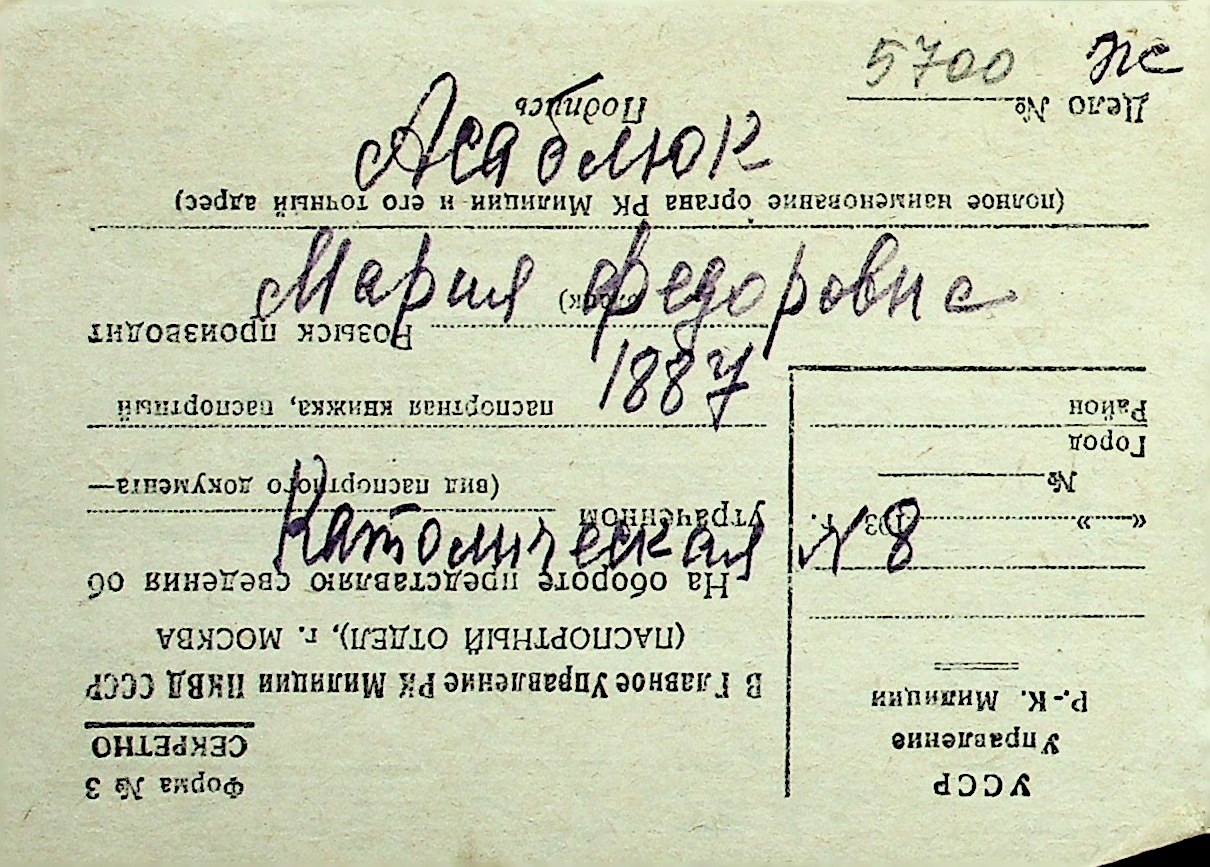 5700 Жс
Асаблюк
Мария Федоровнс
1887
Католическая N 8
Форма № 3
СЕКРЕТНО
УССР
Управление
Р.-К. Милиции
В Главное Управление РК Милиции НКВД СССР
(ПАСПОРТНЫЙ ОТДЕЛ), г. МОСКВА
На обороте представляю сведения об
утраченном
(вид паспортного документа—
паспортная книжка, паспортный
«—» 193 г.
№
Город
Район
Розыск производит
(полное наименование органа РК Милиции и его точный адрес)
Дело №
Подпись